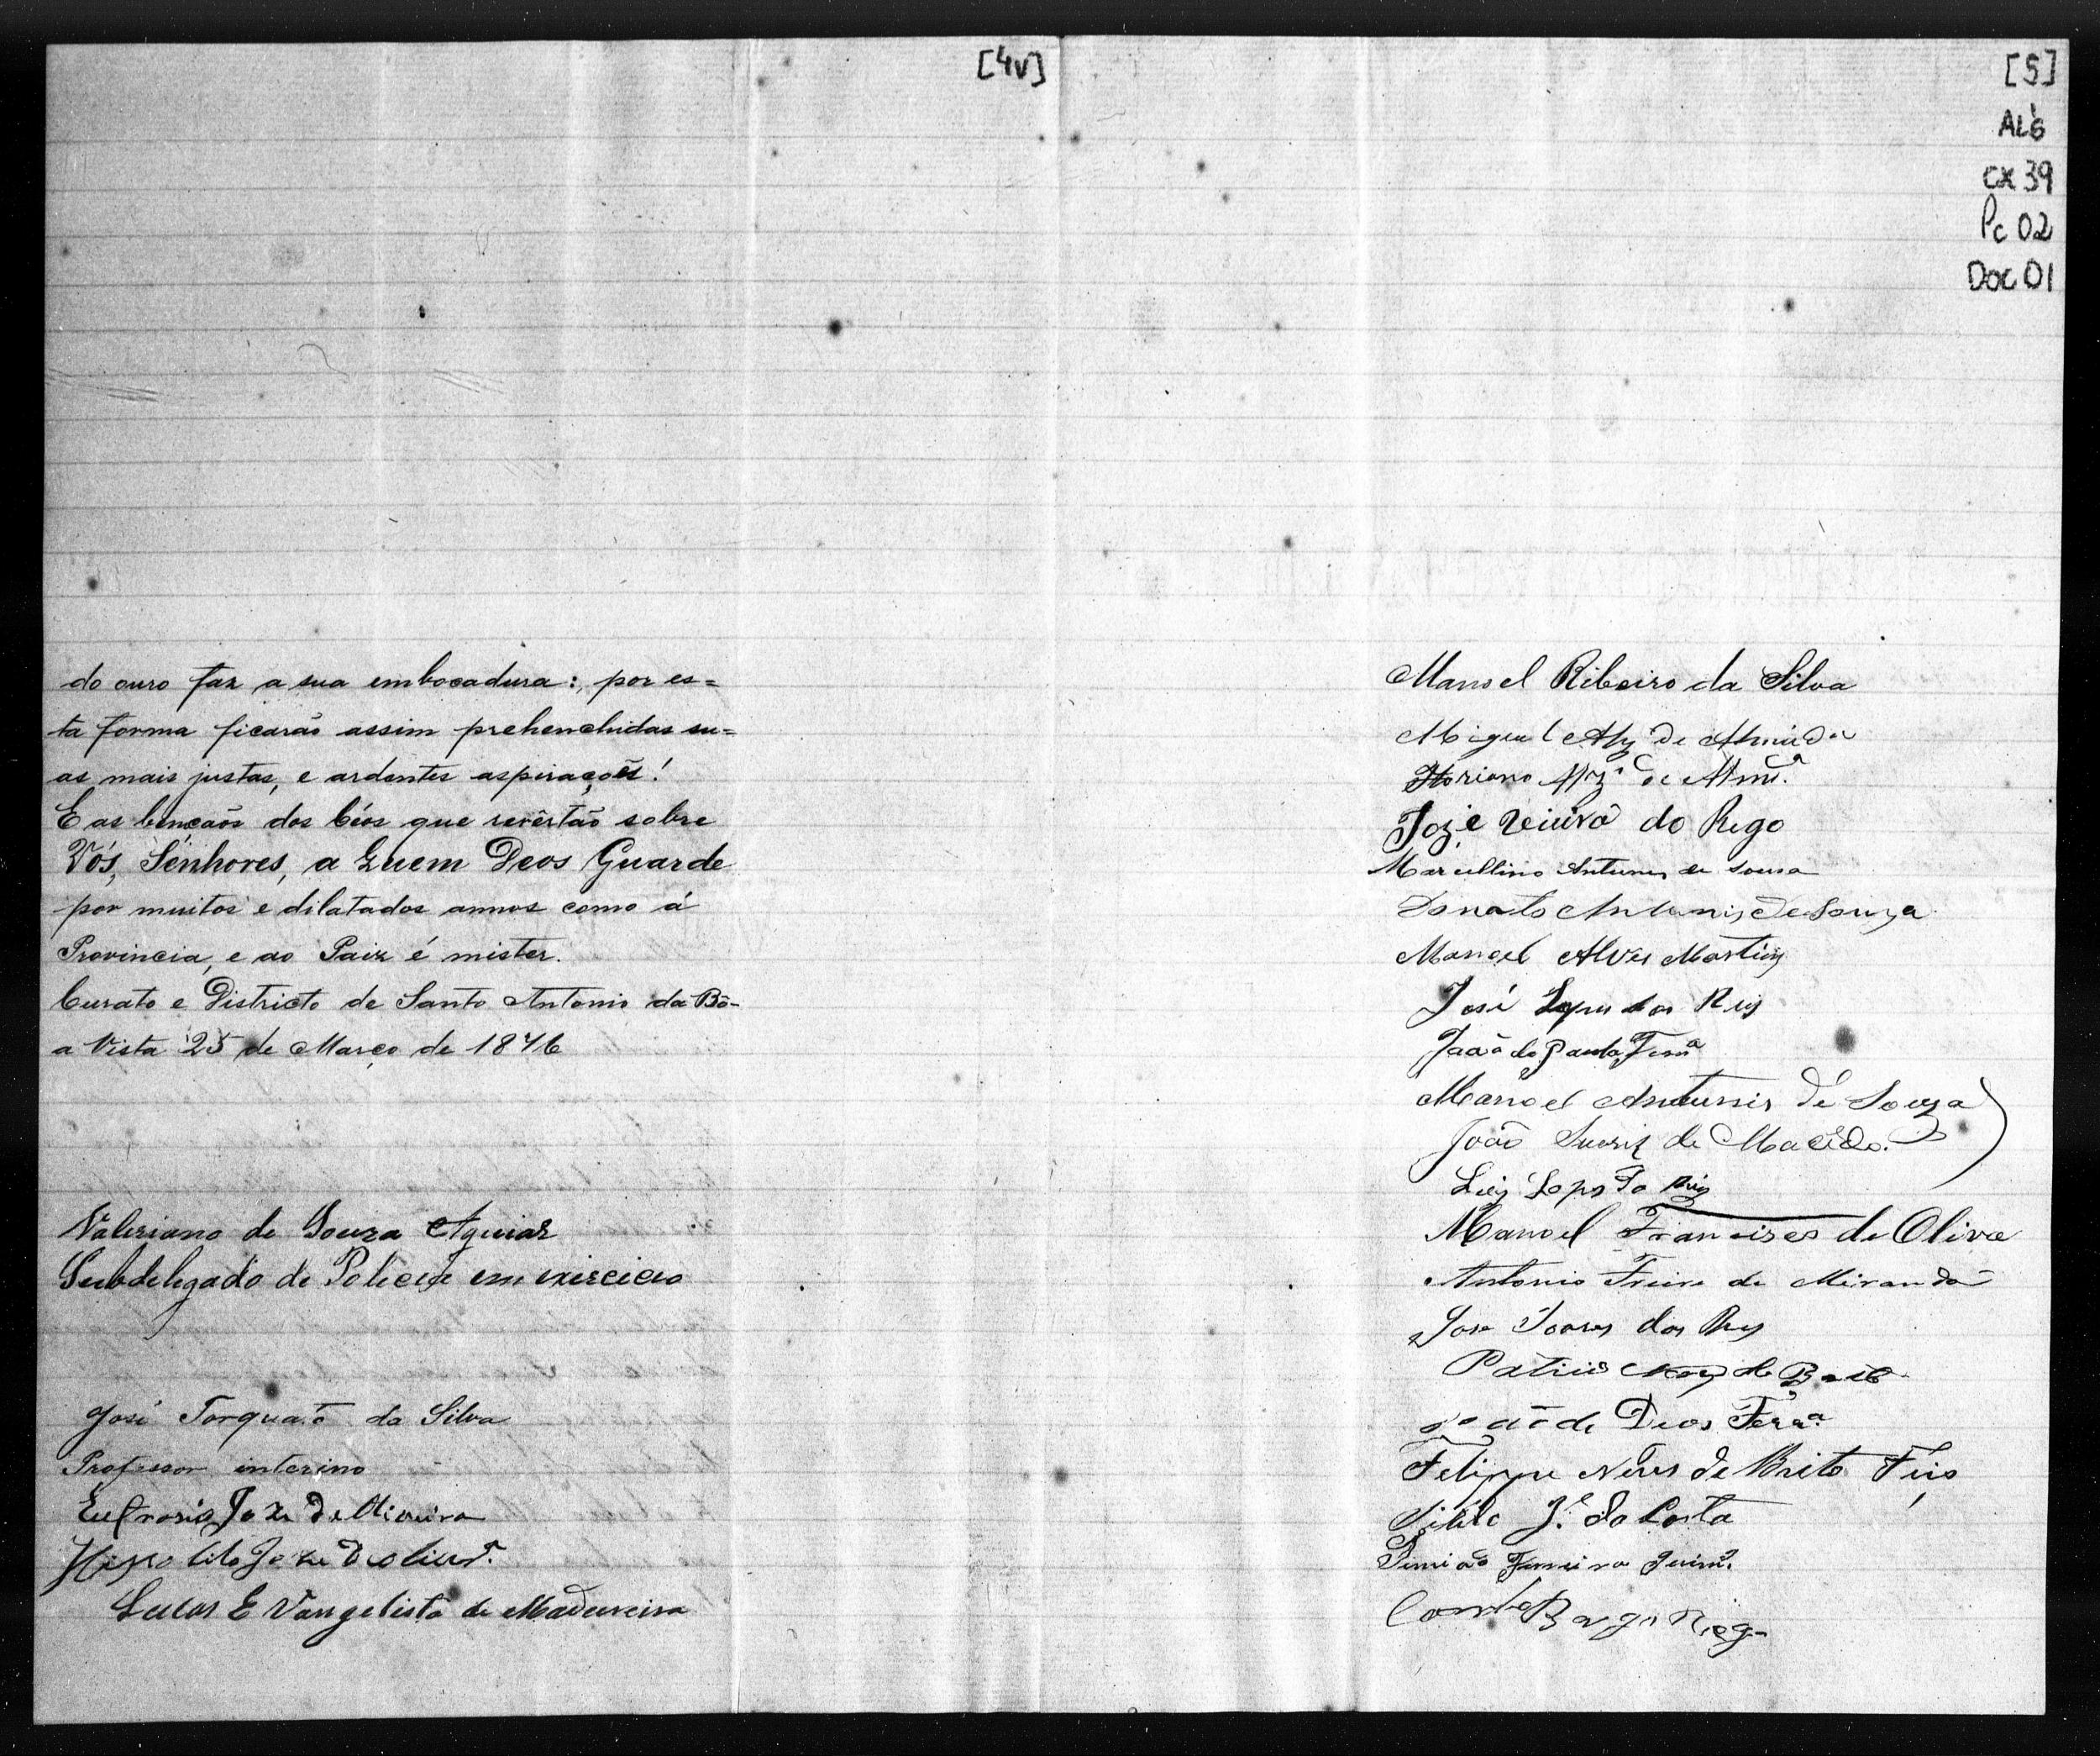 [4v]
do ouro faz a sua embocadura:, por es=
ta forma ficarão assim prehenchidas su=
as mais justas, e ardentes aspirações!
E as bençaõs dos Céos que revêrtaõ sobre
Vós, Senhores, a quem Deos Guarde
por muitos e dilatados annos como á
Provincia, e ao Paiz é mister.
Curato e Districto de Santo Antonio da Bô-
a Vista 25 de Março de 1876
Valeriano de Souza Aguiar
Subdelegado de Policia em exercicio
José Torquato da Silva
Professor interino
Eufrasio Joze de Oliveira
Hippolito Joze de olivr.ª
Lucas Evangelista de Madureira
[5]
AL6
cx 39
Pc 02
Doc 01
Manoel Ribeiro da Silva
Miguel Alz de Almeida
Floriano de Almd.ª
Joze Vieira do Rego
Marcellino Antunes de Sousa
Donato Antunis de Souza
Manoel Alves Martins
José Lopes dos Reis
João de Paula Ferrª
Manoel Antunis de Souza
João Suariz de Macêdo.
Luiz Lopes do Reis
Manoel Francisco de Oliva
Antonio Freire de Miranda
Jose Soares dos Reys
de Brito
João de Deos Ferr.ª
Felippe Neves de Brito Feio
J.e da Costa
Ferreira